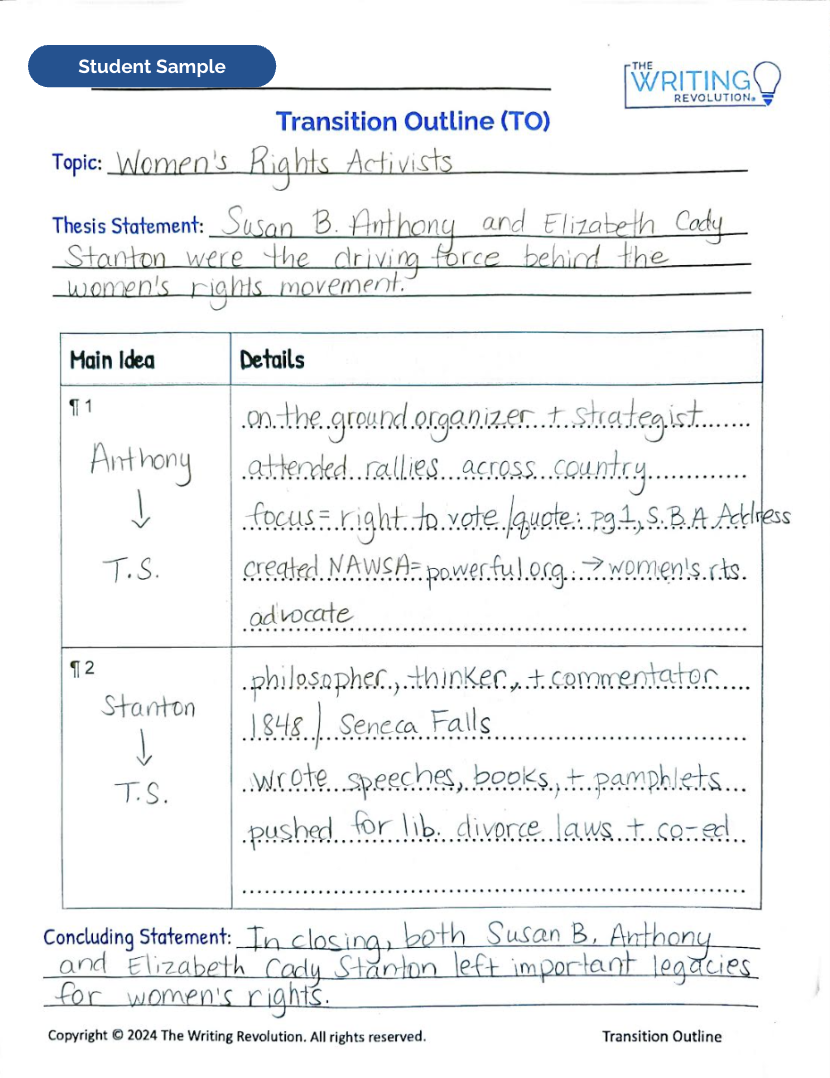 Student Sample
THE
WRITING
REVOLUTION®
Transition Outline (TO)
Topic: Women's Rights Activists
Thesis Statement: Susan B. Anthony and Elizabeth Cady
Stanton were the driving force behind the
women's rights movement.
Main Idea
Details
¶ 1
Anthony
↓
T.S.
on the ground organizer + strategist
attended rallies across country
focus = right to vote / quote: pg 1, S.B.A Address
created NAWSA = powerful org. → women's rts.
advocate
¶ 2
Stanton
↓
T.S.
philosopher, thinker, + commentator
1848 / Seneca Falls
wrote speeches, books, + pamphlets
pushed for lib. divorce laws + co-ed
Concluding Statement: In closing, both Susan B. Anthony
and Elizabeth Cady Stanton left important legacies
for women's rights.
Copyright © 2024 The Writing Revolution. All rights reserved.
Transition Outline